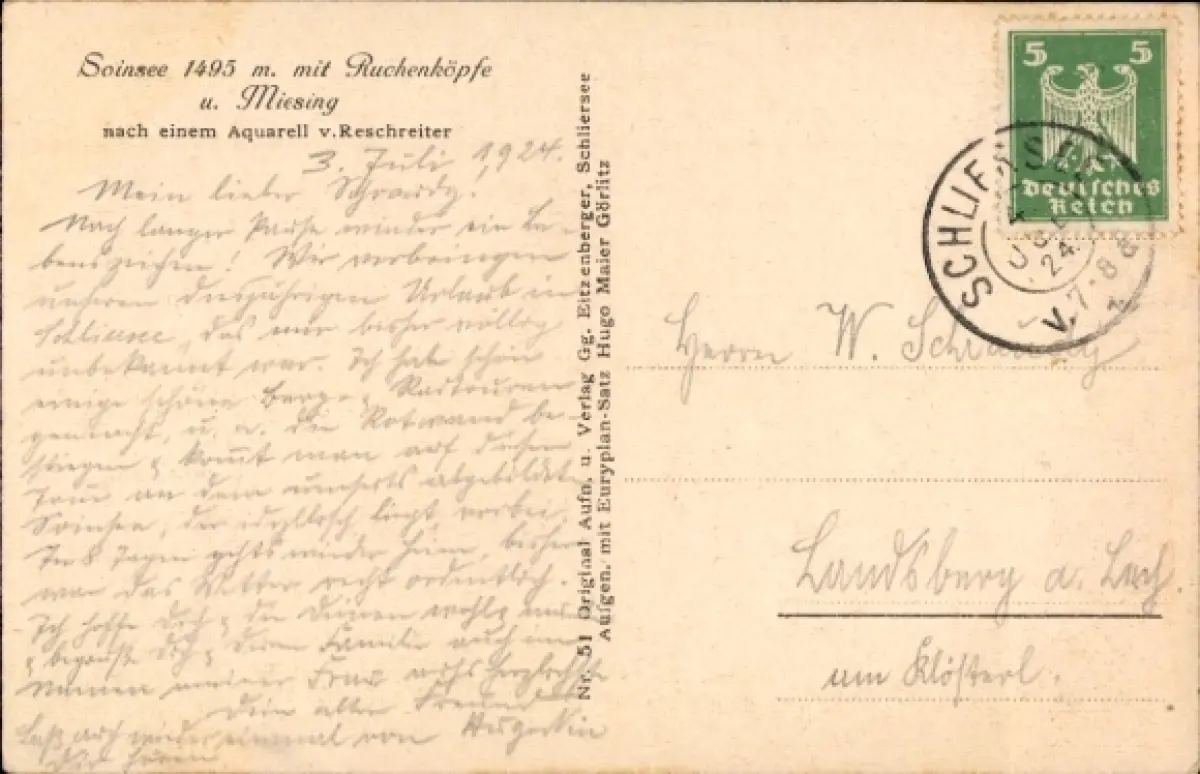 Soinsee 1495 m. mit Ruchenköpfe
u. Miesing
nach einem Aquarell v. Reschreiter
3. Juli 1924.
Mein lieber
Nach langer Pause wieder ein Le-
benszeichen! Wir verbringen
unseren diesjährigen Urlaub in
Schliersee, das mir bisher völlig
unbekannt war. Ich habe schon
einige schöne Berg- & Radtouren
gemacht, u. a. die Rotwand be-
stiegen & kommt man auf dieser
Tour an dem umseits abgebildeten
Soinsee, der idyllisch liegt, vorbei.
In 8 Tagen gehts wieder heim, bisher
war das Wetter recht ordentlich.
Ich hoffe Dich & die Deinen wohl &
& begrüße Dich & Deine Familie auch im
Namen meiner Frau aufs herzlichste
Dein alter Freund
Laß auch wieder einmal von
Dir hören
Nr. 51 Original Aufn. u. Verlag Gg. Eitzenberger, Schliersee
Aufgen. mit Euryplan-Satz Hugo Maier Görlitz
5 5
Deutsches
Reich
SCHLIERSEE
4
JUL
24
V. 7-8
Herrn W.
Landsberg a. Lech
am Klösterl.